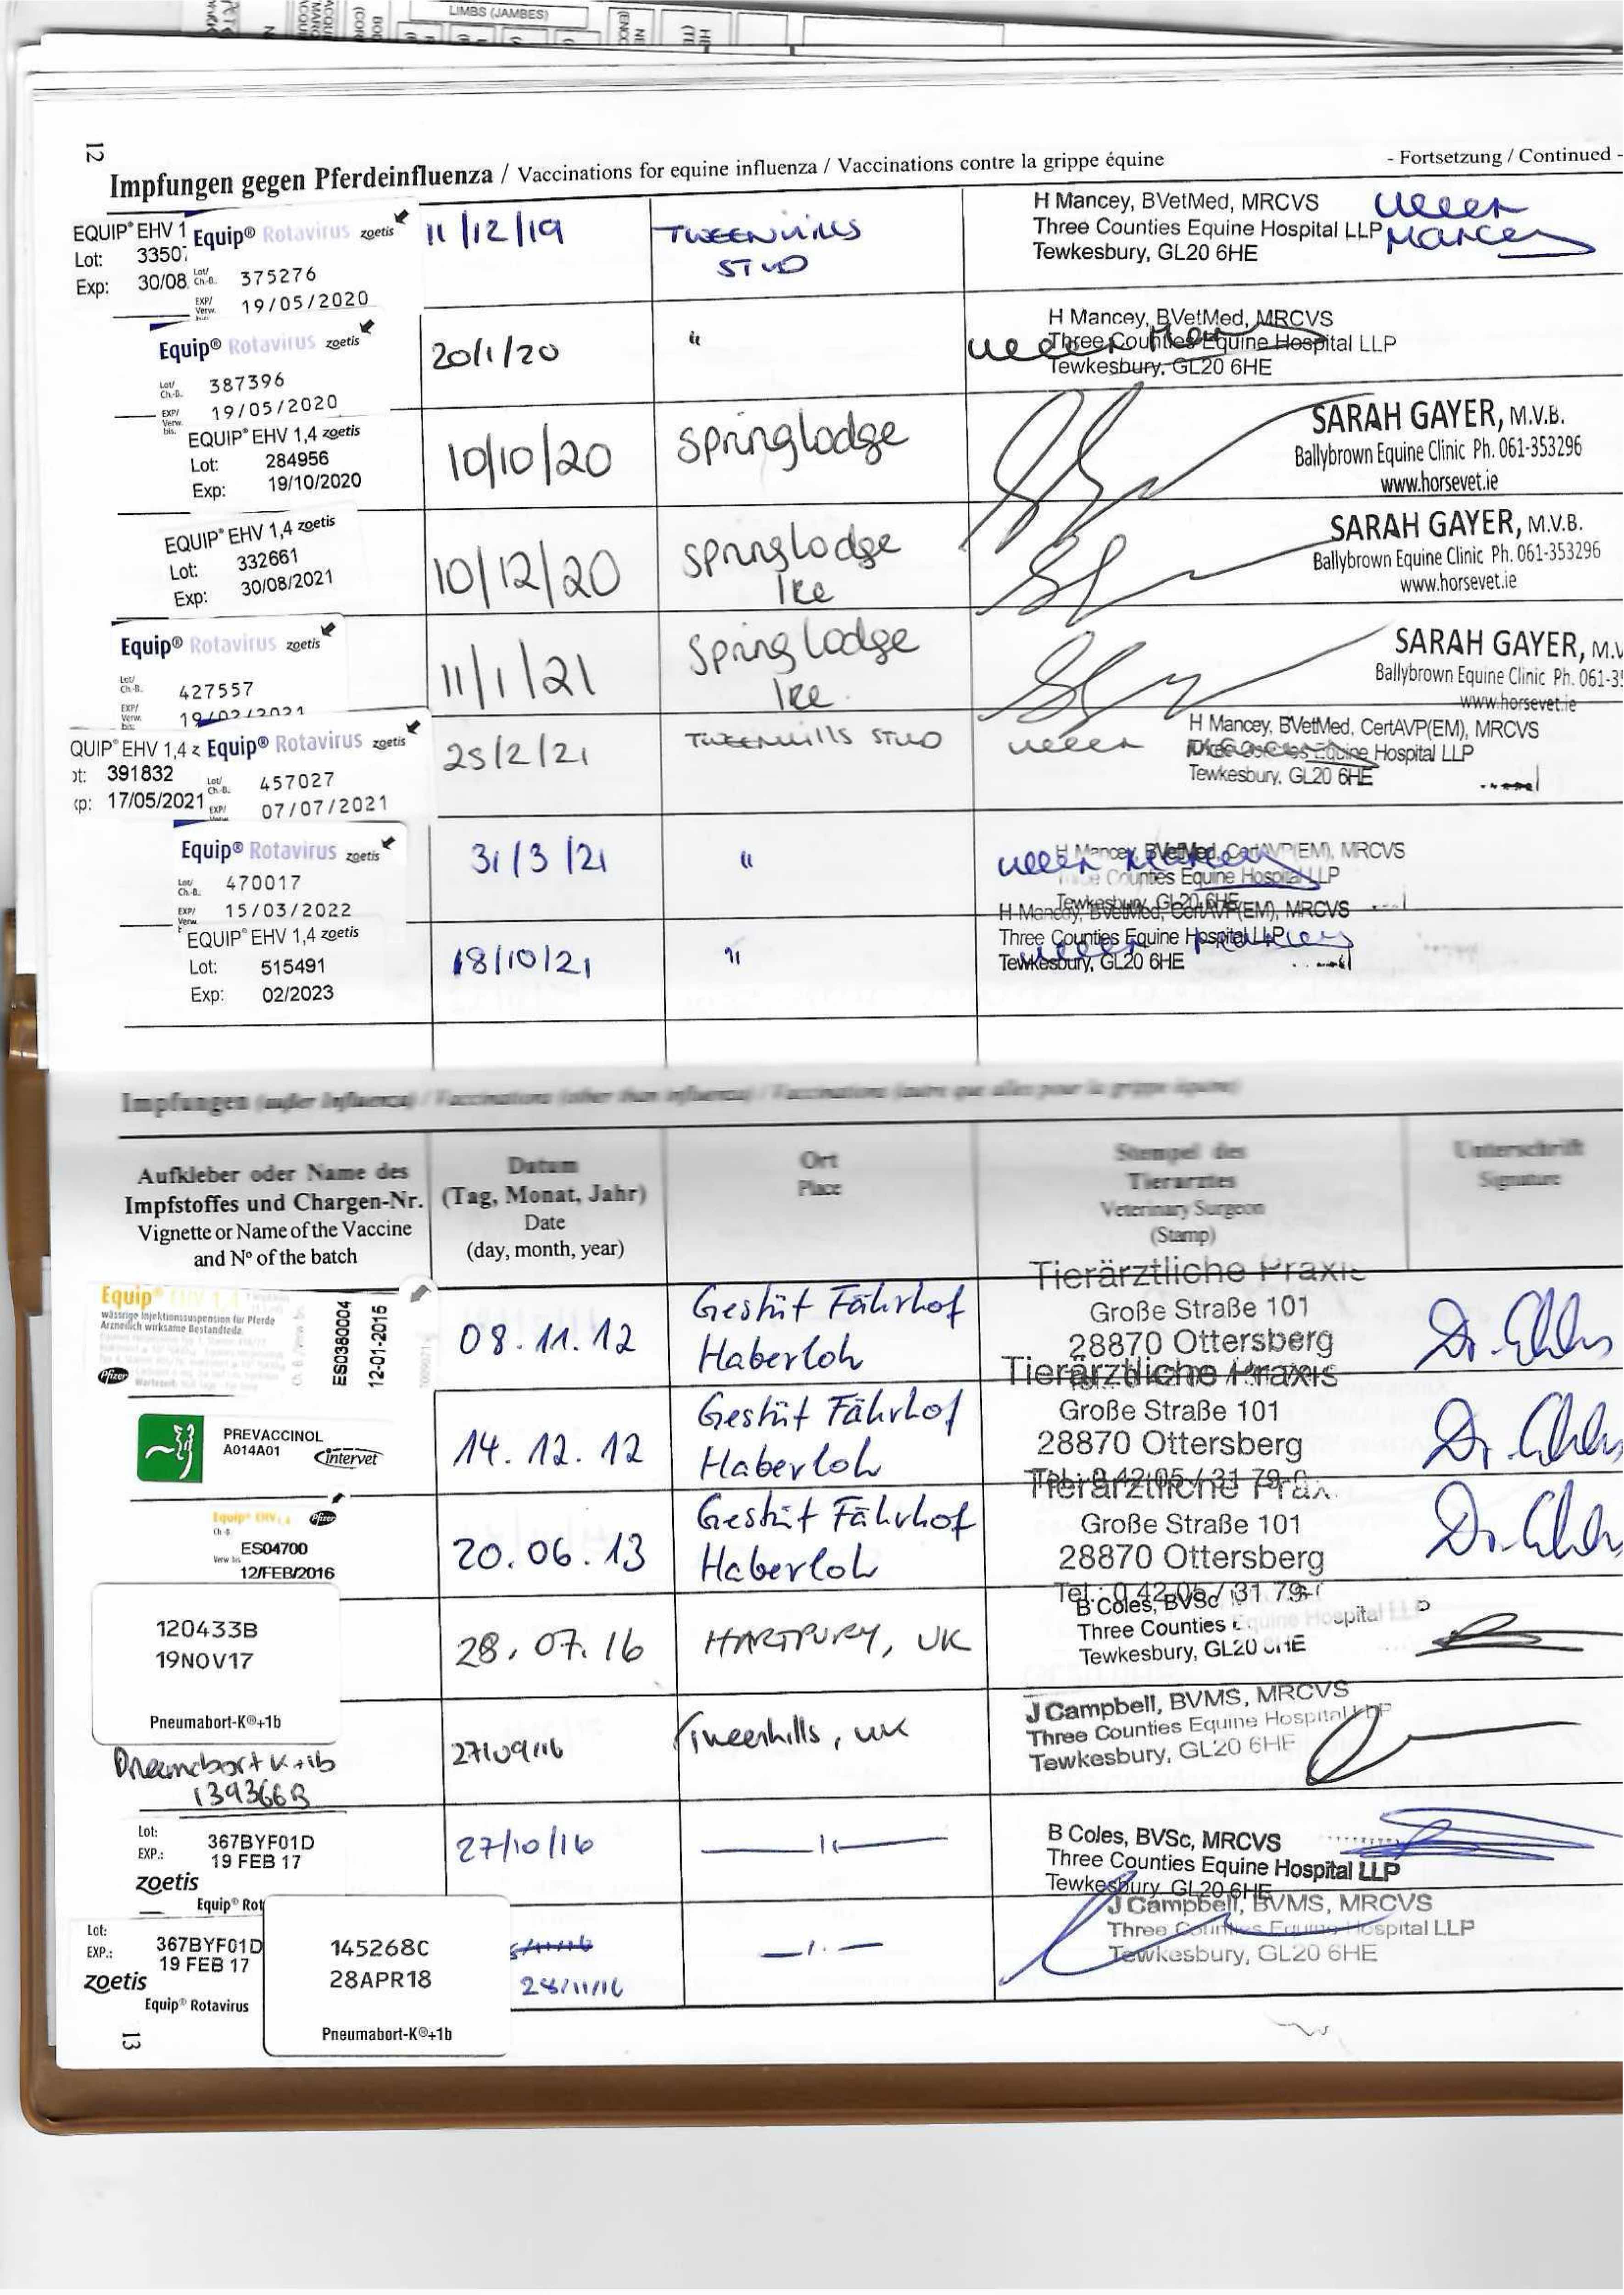 LIMBS (JAMBES)
12
Impfungen gegen Pferdeinfluenza / Vaccinations for equine influenza / Vaccinations contre la grippe équine
- Fortsetzung / Continued -
EQUIP® EHV 1
Lot: 3350
Exp: 30/08
Equip® Rotavirus zoetis
Lot/ Ch.-B. 375276
EXP/ Verw. bis: 19/05/2020
11/12/19
TWEENHILLS
STUD
H Mancey, BVetMed, MRCVS
Three Counties Equine Hospital LLP
Tewkesbury, GL20 6HE
Equip® Rotavirus zoetis
Lot/ Ch.-B. 387396
EXP/ Verw. bis. 19/05/2020
20/1/20
"
H Mancey, BVetMed, MRCVS
Three Counties Equine Hospital LLP
Tewkesbury, GL20 6HE
EQUIP® EHV 1,4 zoetis
Lot: 284956
Exp: 19/10/2020
10/10/20
Springlodge
SARAH GAYER, M.V.B.
Ballybrown Equine Clinic Ph. 061-353296
www.horsevet.ie
EQUIP® EHV 1,4 zoetis
Lot: 332661
Exp: 30/08/2021
10/12/20
Springlodge
Ire
SARAH GAYER, M.V.B.
Ballybrown Equine Clinic Ph. 061-353296
www.horsevet.ie
Equip® Rotavirus zoetis
Lot/ Ch.-B. 427557
EXP/ Verw. bis: 19/02/2021
11/1/21
Spring Lodge
Ire.
SARAH GAYER, M.V
Ballybrown Equine Clinic Ph. 061-35
www.horsevet.ie
QUIP® EHV 1,4 z
ot: 391832
xp: 17/05/2021
Equip® Rotavirus zoetis
Lot/ Ch.-B. 457027
EXP/ 07/07/2021
25/2/21
TWEENHILLS STUD
H Mancey, BVetMed, CertAVP(EM), MRCVS
Three Counties Equine Hospital LLP
Tewkesbury, GL20 6HE
Equip® Rotavirus zoetis
Lot/ Ch.-B. 470017
EXP/ Verw. 15/03/2022
31/3/21
"
H Mancey, BVetMed, CertAVP(EM), MRCVS
Three Counties Equine Hospital LLP
Tewkesbury, GL20 6HE
EQUIP® EHV 1,4 zoetis
Lot: 515491
Exp: 02/2023
18/10/21
"
H Mancey, BVetMed, CertAVP(EM), MRCVS
Three Counties Equine Hospital LLP
Tewkesbury, GL20 6HE
Impfungen (außer Influenza) / Vaccinations (other than influenza) / Vaccinations (autre que alles pour la grippe équine)
Aufkleber oder Name des
Impfstoffes und Chargen-Nr.
Vignette or Name of the Vaccine
and Nº of the batch
Datum
(Tag, Monat, Jahr)
Date
(day, month, year)
Ort
Place
Stempel des
Tierarztes
Veterinary Surgeon
(Stamp)
Unterschrift
Signature
Equip® EHV 1,4
wässrige Injektionssuspension für Pferde
Arzneilich wirksame Bestandteile
Pfizer
ES0380004
12-01-2015
08.11.12
Gestüt Fährhof
Haberloh
Tierärztliche Praxis
Große Straße 101
28870 Ottersberg
PREVACCINOL
A014A01
intervet
14.12.12
Gestüt Fährhof
Haberloh
Tierärztliche Praxis
Große Straße 101
28870 Ottersberg
Tel.: 0 42 05 / 31 79-0
Equip® EHV 1,4 Pfizer
Ch.-B.
ES04700
Verw. bis
12/FEB/2016
20.06.13
Gestüt Fährhof
Haberloh
Tierärztliche Prax
Große Straße 101
28870 Ottersberg
Tel.: 0 42 05 / 31 79-
120433B
19NOV17
Pneumabort-K®+1b
28.07.16
HARTPURY, UK
B Coles, BVSc
Three Counties Equine Hospital LLP
Tewkesbury, GL20 6HE
Pneumabort K+1b
139366B
27/09/16
Tweenhills, UK
J Campbell, BVMS, MRCVS
Three Counties Equine Hospital LLP
Tewkesbury, GL20 6HE
Lot: 367BYF01D
EXP.: 19 FEB 17
zoetis
Equip® Rot
27/10/16
B Coles, BVSc, MRCVS
Three Counties Equine Hospital LLP
Tewkesbury, GL20 6HE
Lot: 367BYF01D
EXP.: 19 FEB 17
zoetis
Equip® Rotavirus
145268C
28APR18
Pneumabort-K®+1b
28/11/16
J Campbell, BVMS, MRCVS
Three Counties Equine Hospital LLP
Tewkesbury, GL20 6HE
13